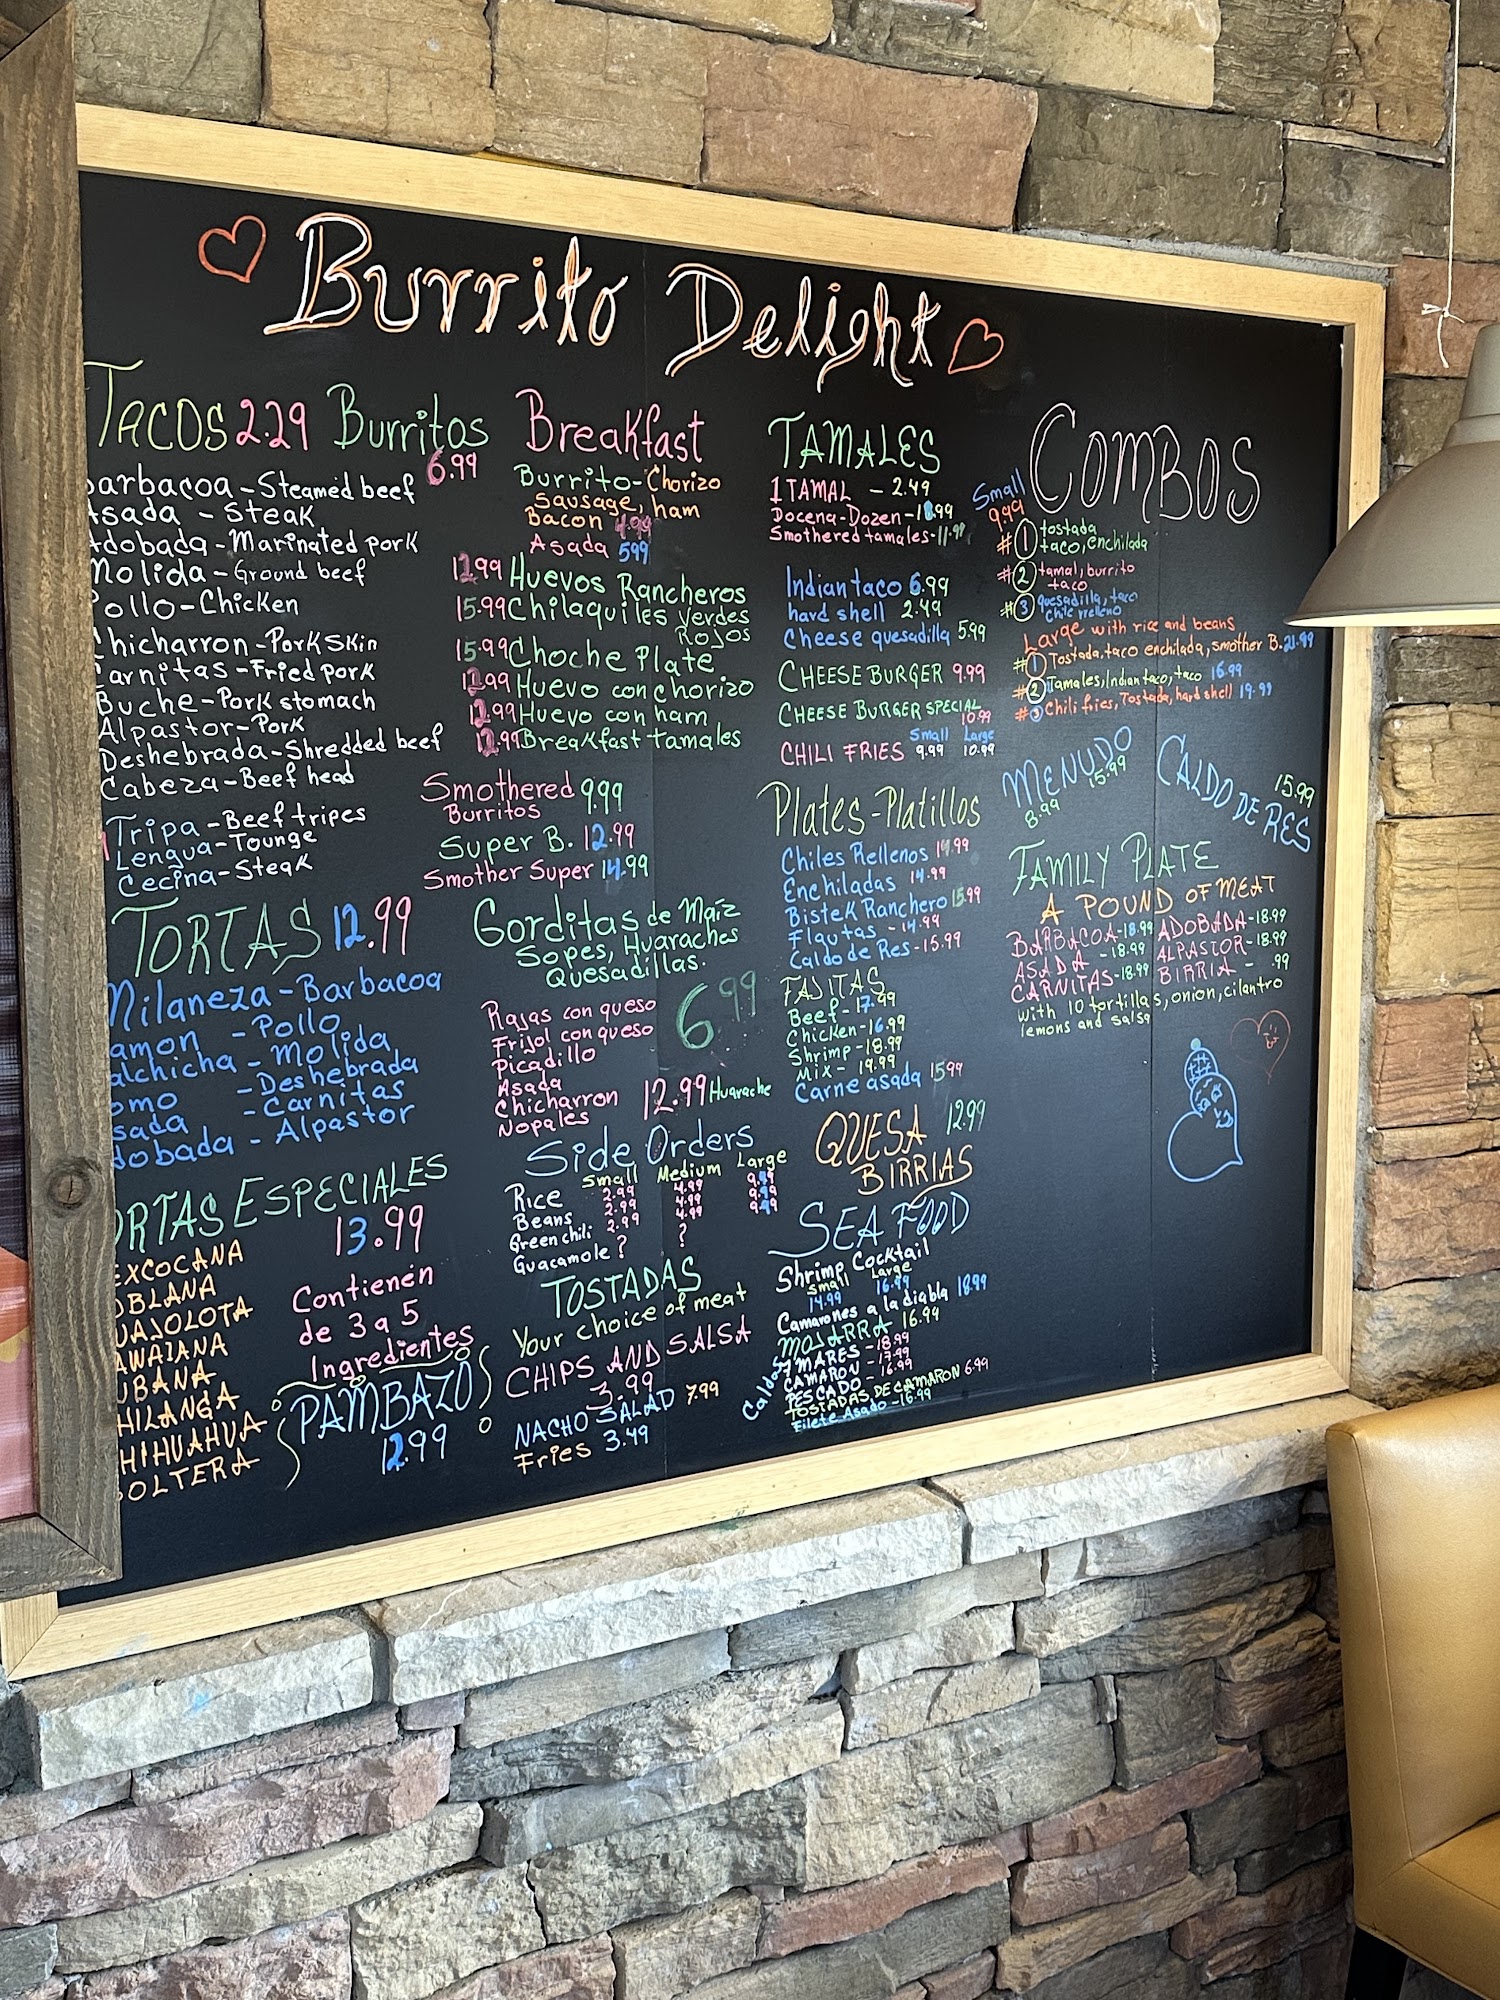 Burrito Delight
TACOS 2.29 Burritos
6.99
arbacoa - Steamed beef
sada - Steak
dobada - Marinated pork
Molida - Ground beef
Pollo - Chicken
Chicharron - Pork Skin
arnitas - Fried pork
Buche - Pork stomach
Alpastor - Pork
Deshebrada - Shredded beef
Cabeza - Beef head
Tripa - Beef tripes
Lengua - Tounge
Cecina - Steak
TORTAS 12.99
Milaneza - Barbacoa
amon - Pollo
alchicha - Molida
omo - Deshebrada
sada - Carnitas
dobada - Alpastor
ORTAS ESPECIALES
13.99
EXCOCANA
OBLANA
UAJOLOTA
AWAIANA
UBANA
HILANGA
HIHUAHUA
OLTERA
Contienen
de 3 a 5
Ingredientes
PAMBAZO
12.99
Breakfast
Burrito - Chorizo
Sausage, ham
Bacon 4.99
Asada 5.99
12.99 Huevos Rancheros
15.99 Chilaquiles Verdes
Rojos
15.99 Choche Plate
12.99 Huevo con chorizo
12.99 Huevo con ham
12.99 Breakfast tamales
Smothered 9.99
Burritos
Super B. 12.99
Smother Super 14.99
Gorditas de Maíz
Sopes, Huaraches
Quesadillas.
6.99
Rajas con queso
Frijol con queso
Picadillo
Asada
Chicharron
Nopales
12.99 Huarache
Side Orders
Small Medium Large
Rice 2.99 4.99 9.99
Beans 2.99 4.99 9.99
Green chili 2.99 4.99 9.99
Guacamole ? ?
TOSTADAS
Your choice of meat
CHIPS AND SALSA
3.99
NACHO SALAD 7.99
Fries 3.49
TAMALES
1 TAMAL - 2.49
Docena - Dozen - 18.99
Smothered tamales - 11.99
Indian taco 6.99
hard shell 2.49
Cheese quesadilla 5.99
CHEESE BURGER 9.99
CHEESE BURGER SPECIAL
10.99
Small Large
CHILI FRIES 9.99 10.99
Plates - Platillos
Chiles Rellenos 14.99
Enchiladas 14.99
Bistek Ranchero 15.99
Flautas - 14.99
Caldo de Res - 15.99
FAJITAS
Beef - 17.99
Chicken - 16.99
Shrimp - 18.99
Mix - 19.99
Carne asada 15.99
QUESA 12.99
BIRRIAS
SEA FOOD
Shrimp Cocktail
Small Large
14.99 16.99
Camarones a la diabla 18.99
MOJARRA 16.99
Caldos
7 MARES - 18.99
CAMARON - 17.99
PESCADO - 16.99
TOSTADAS DE CAMARON 6.99
Filete Asado - 16.99
COMBOS
Small
9.99
#1 tostada
taco, enchilada
#2 tamal, burrito
taco
#3 quesadilla, taco
chile relleno
Large with rice and beans
#1 Tostada, taco enchilada, smother B. 21.99
#2 Tamales, Indian taco, taco 16.99
#3 Chili fries, Tostada, hard shell 19.99
MENUDO
8.99 15.99
CALDO DE RES
15.99
FAMILY PLATE
A POUND OF MEAT
BARBACOA - 18.99 ADOBADA - 18.99
ASADA - 18.99 ALPASTOR - 18.99
CARNITAS - 18.99 BIRRIA - .99
with 10 tortillas, onion, cilantro
lemons and salsa